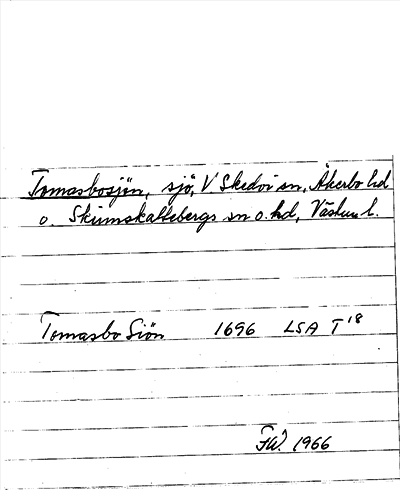 Tomasbosjön, sjö, V. Skedvi sn, Åkerbo hd
o. Skinnskattebergs sn o. hd, Västm. l.
Tomasbo Siön 1696 LSA T 18
FW. 1966